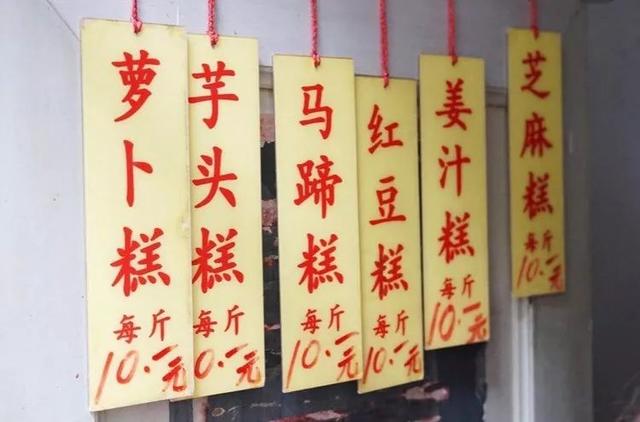 萝卜糕
每斤
10.-元
芋头糕
每斤
0.-元
马蹄糕
每斤
10.-元
红豆糕
每斤
10.-元
姜汁糕
每斤
10.-元
芝麻糕
每斤
10.-元